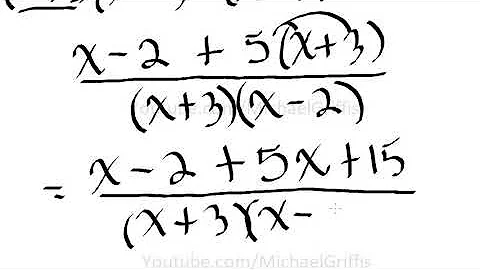 x - 2 + 5(x+3)
(x+3)(x-2)
= x - 2 + 5x + 15
(x+3)(x-
Youtube.com/MichaelGriffis